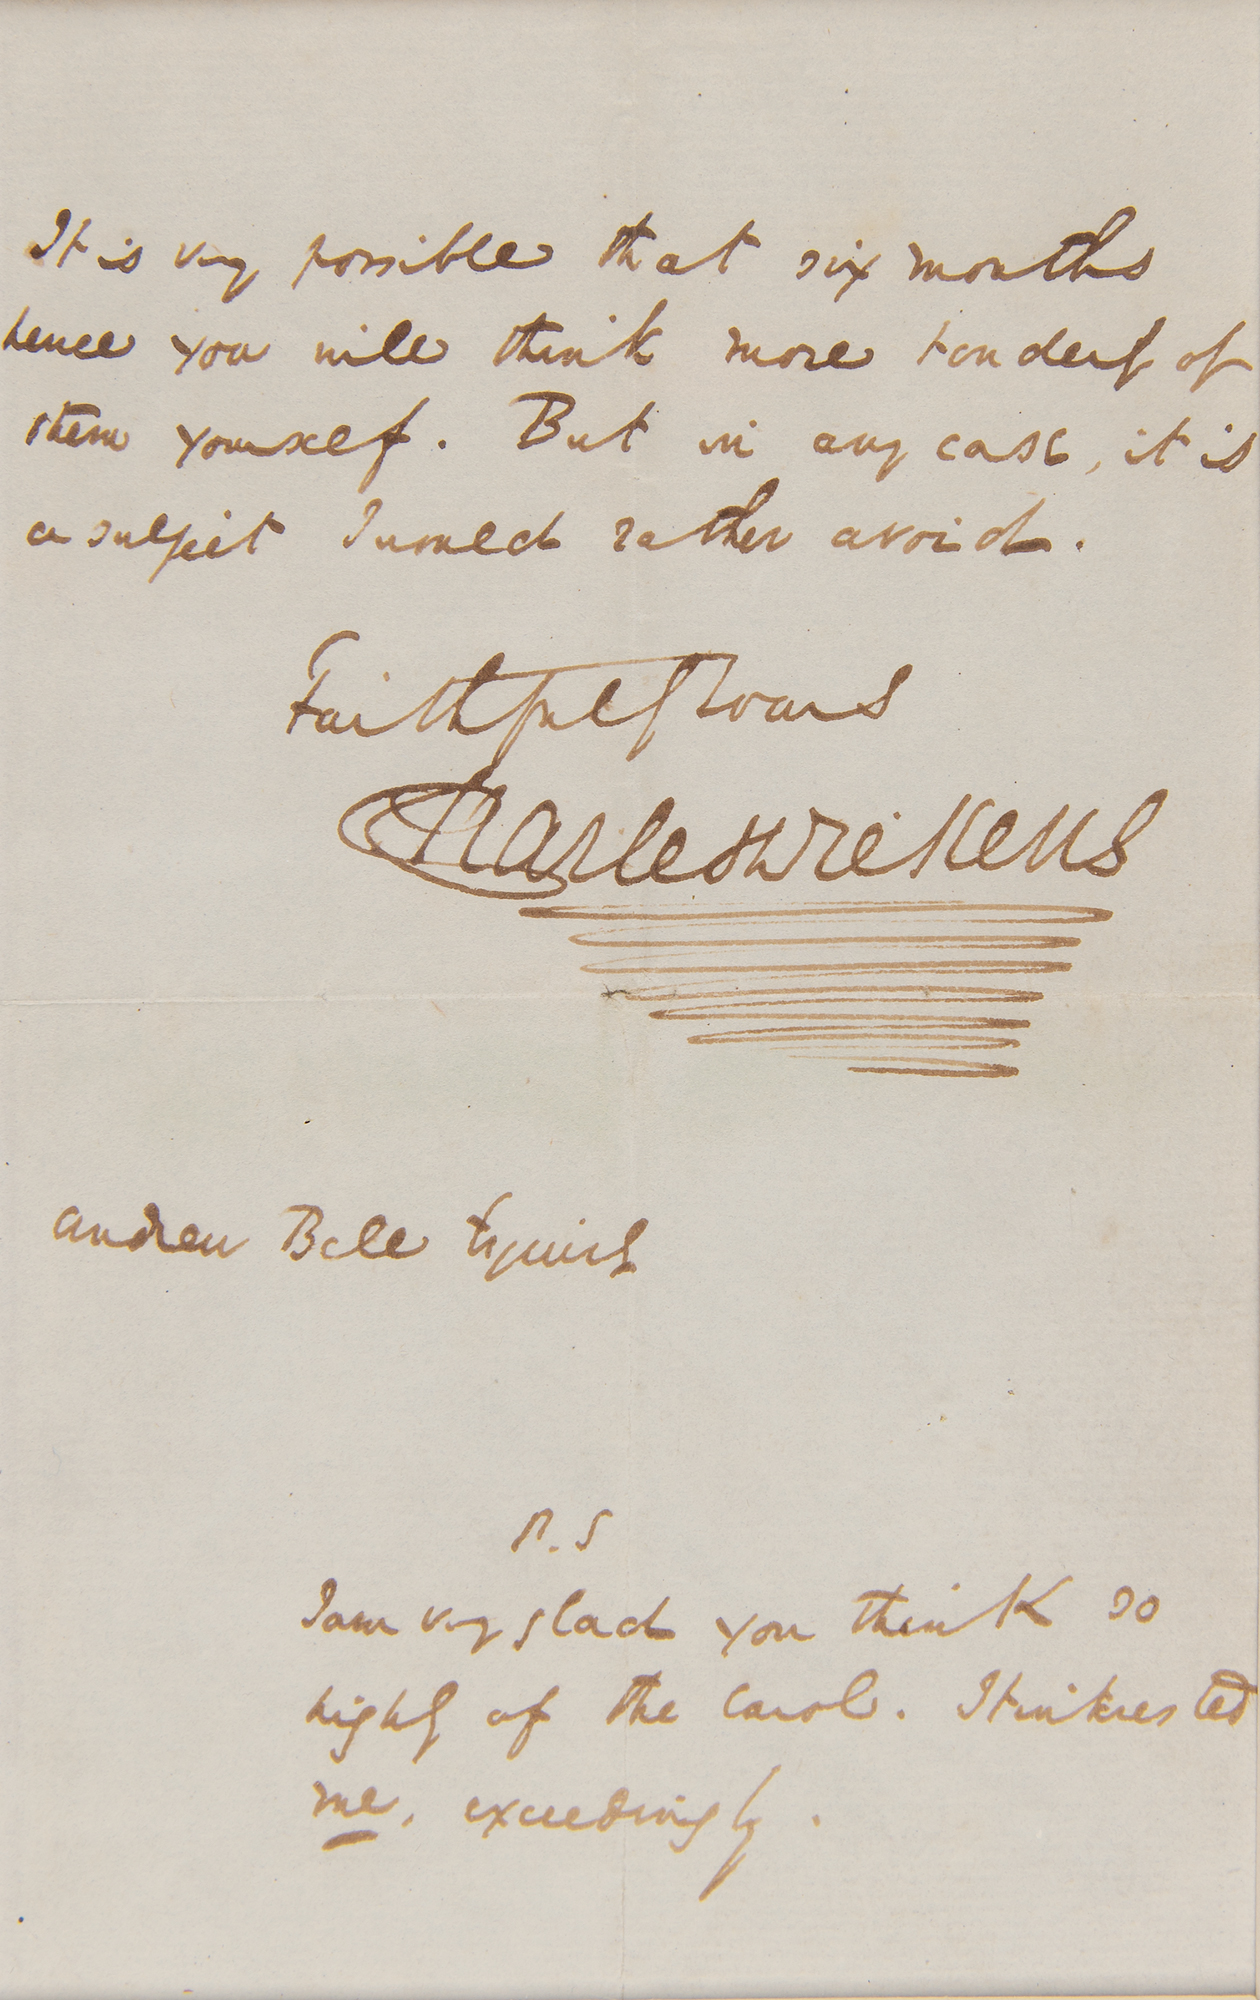 It is very possible that six months
hence you will think more tenderly of
them yourself. But in any case, it is
a subject I would rather avoid.
Faithfully Yours
Charles Dickens
Andrew Bell Esquire
P.S
I am very glad you think so
highly of the Carol. It interested
me, exceedingly.